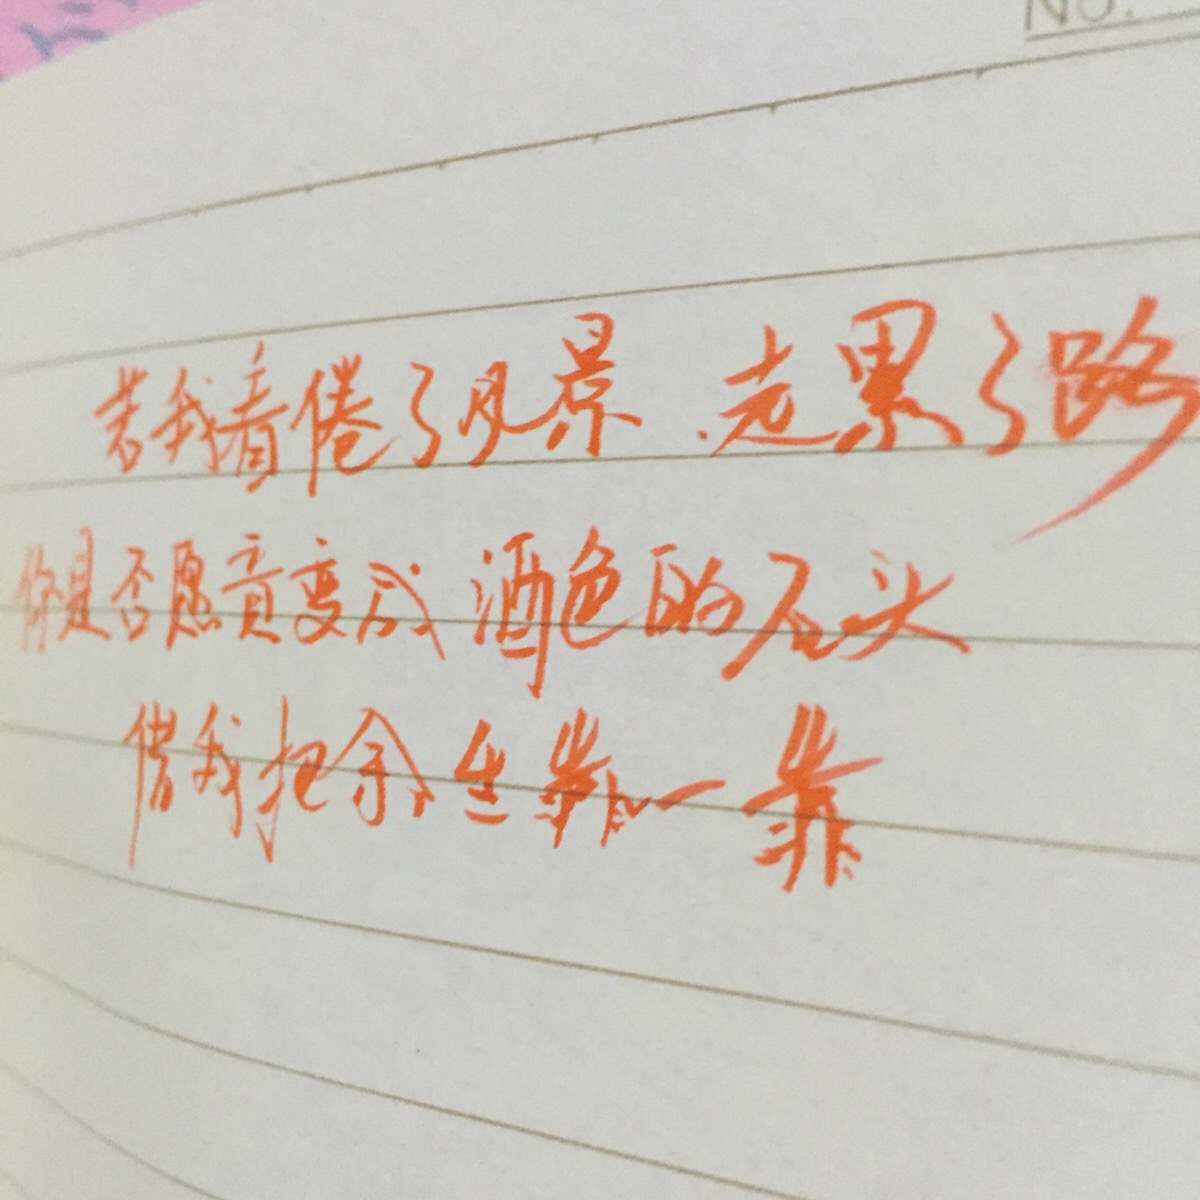 No.
若我看倦了风景 走累了路
你是否愿意变成 酒色的石头
借我把余生靠一靠